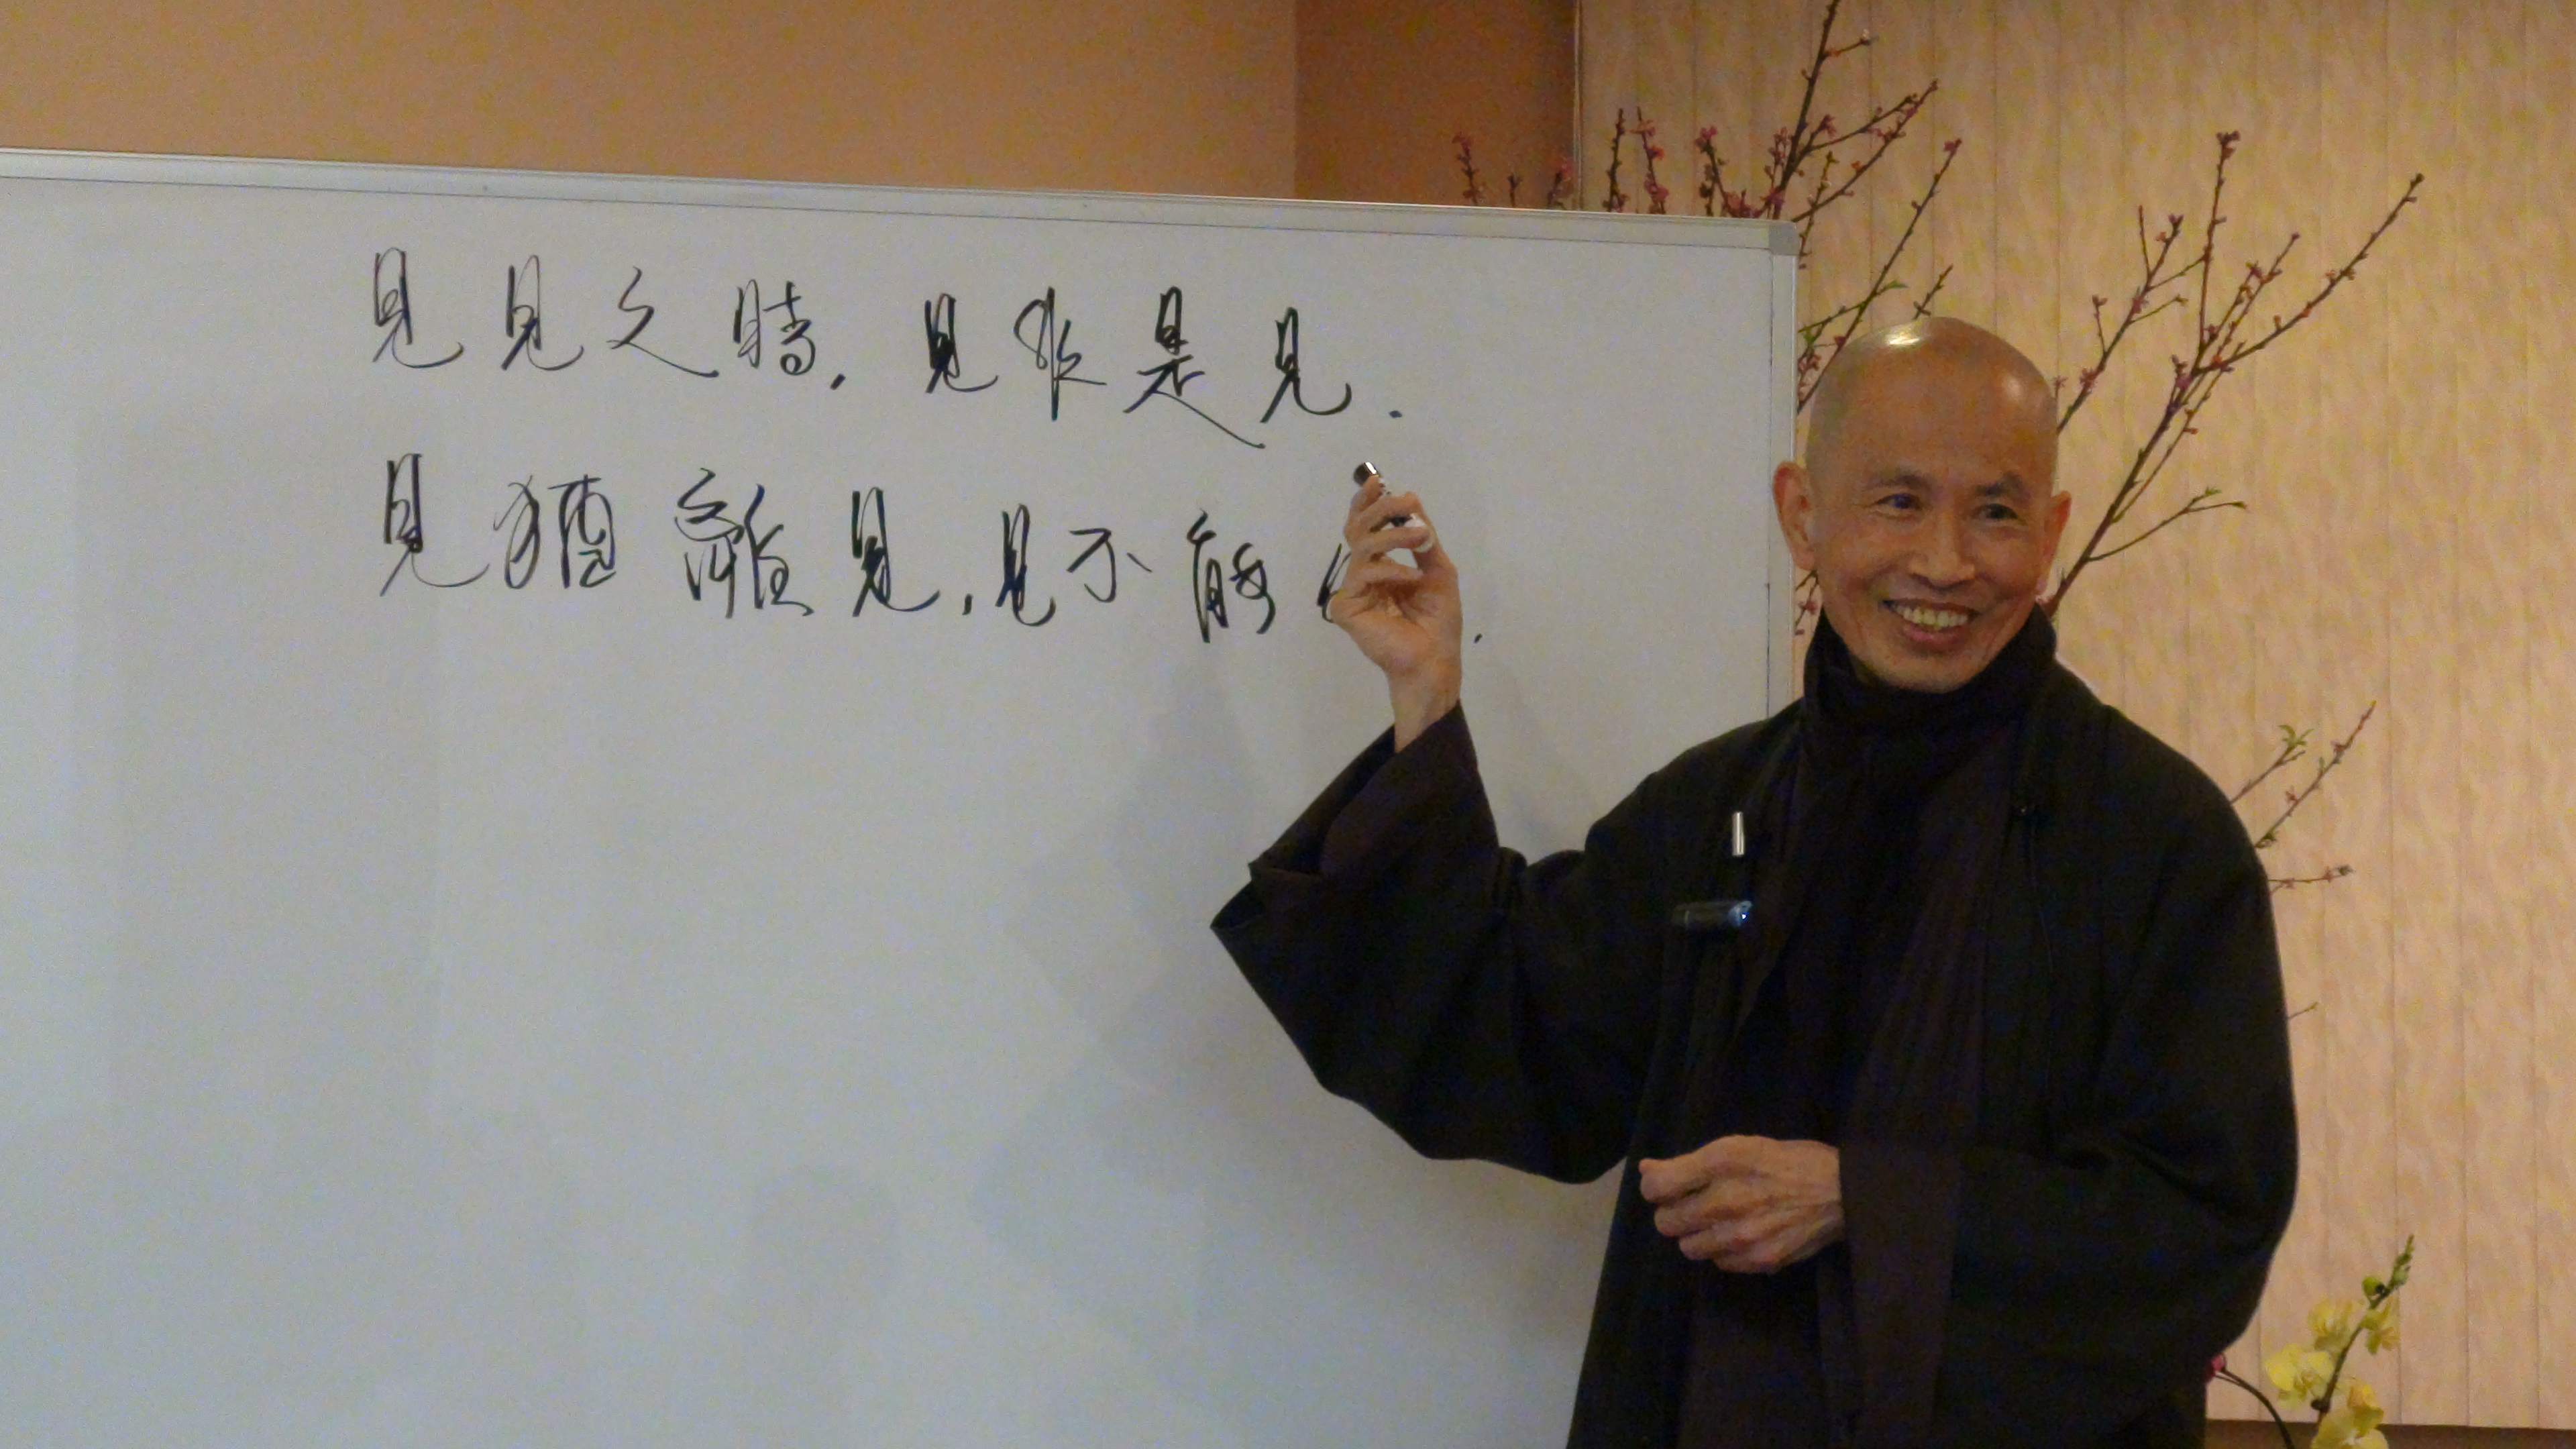 見見之時,見非是見.
見猶離見,見不能 .